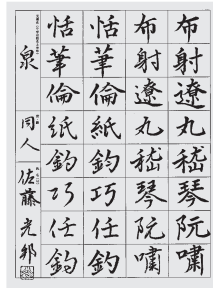 布射遼丸嵇琴阮嘯
布射遼丸嵇琴阮嘯
恬筆倫紙鈞巧任釣
恬筆倫紙鈞巧任釣
泉 同人 佐藤光